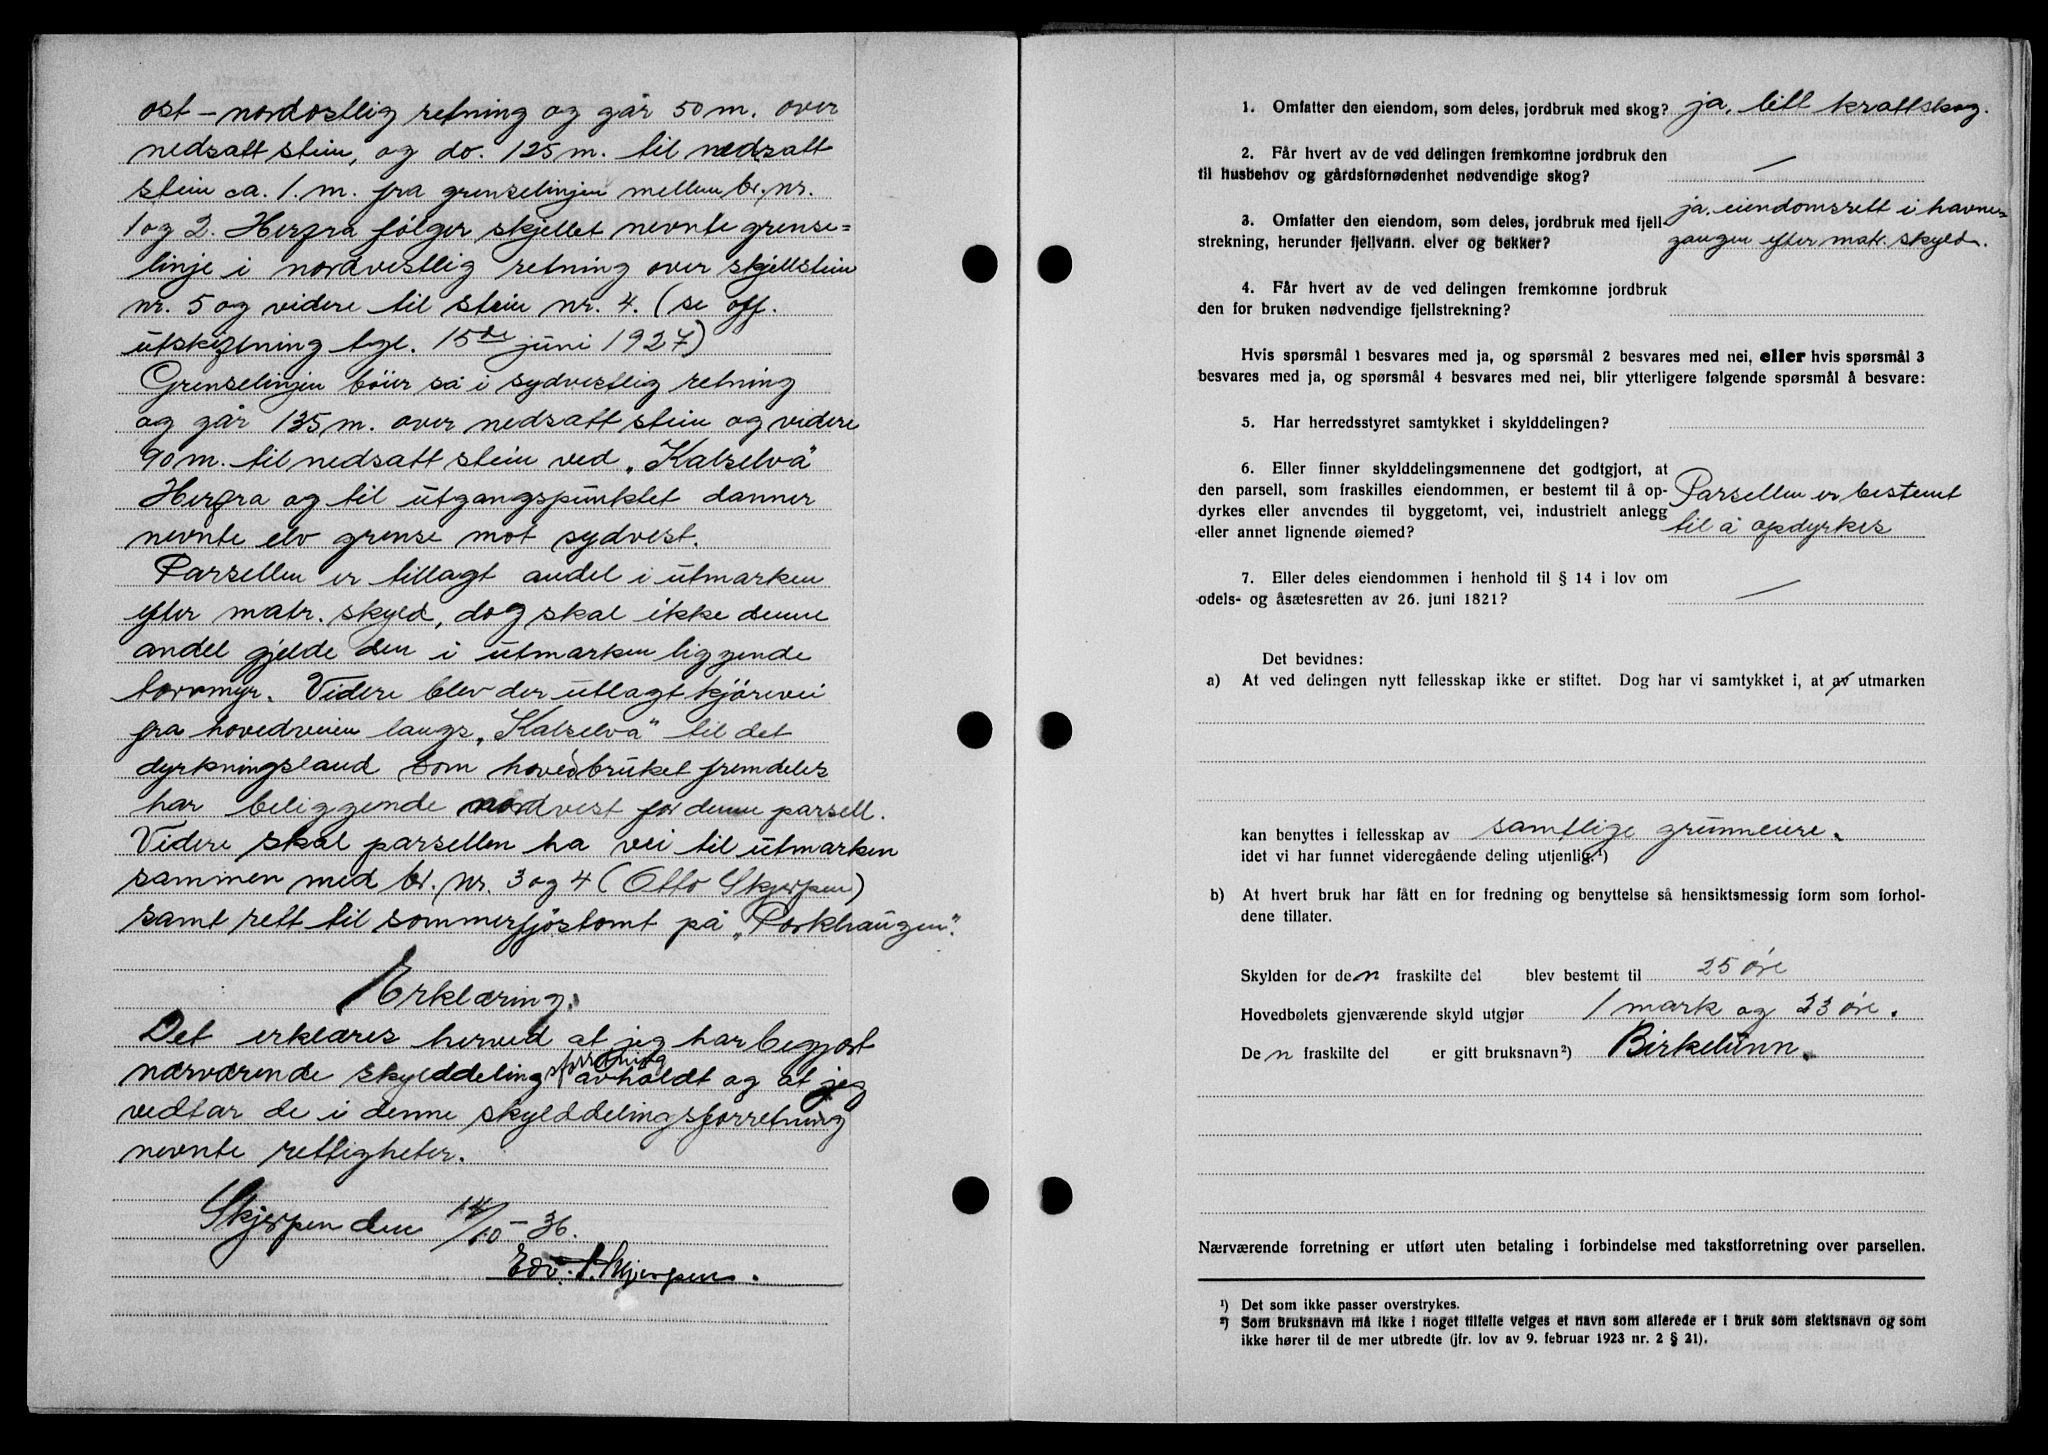 ost-nordostlig retning og går 50 m. over
nedsatt stein, og do. 125 m. til nedsatt
stein ca. 1. m. fra grenselinjen mellem br. nr.
1 og 2. Herfra følger skjellet nevnte grense=
linje i nordvestlig retning over skjellstein
nr. 5 og videre til stein nr. 4. (se off.
utskiftning tgl. 15de juni 1927)
Grenselinjen bøier så i sydvestlig retning
og går 135 m. over nedsatt stein og videre
90 m. til nedsatt stein ved „Kalselva"
Herfra og til utgangspunktet danner
nevnte elv grense mot sydvest.
Parsellen er tillagt andel i utmarken
efter matr. skyld, dog skal ikke denne
andel gjelde den i utmarken liggende
torvmyr. Videre blev der utlagt kjørevei
fra hovedveien langs „Kalselva" til det
dyrkningsland som hovedbruket fremdeles
har beliggende nordvest for denne parsell.
Videre skal parsellen ha vei til utmarken
sammen med br. nr. 3 og 4 (Otto Skjerpen)
samt rett til sommerfjøstomt på „Porkhaugen".
Erklæring.
Det erklæres herved at jeg har begjært
nærværende skylddelingsforretning avholdt og at jeg
vedtar de i denne skylddelingsforretning
nevnte rettigheter.
Skjerpen den 14/10-36.
Edv. S. Skjerpen.
1. Omfatter den eiendom, som deles, jordbruk med skog? ja, litt krattskog.
2. Får hvert av de ved delingen fremkomne jordbruk den
til husbehov og gårdsfornødenhet nødvendige skog? —
3. Omfatter den eiendom, som deles, jordbruk med fjell- ja, eiendomsrett i havne-
strekning, herunder fjellvann, elver og bekker? gangen efter matr. skyld.
4. Får hvert av de ved delingen fremkomne jordbruk
den for bruken nødvendige fjellstrekning?
Hvis spørsmål 1 besvares med ja, og spørsmål 2 besvares med nei, eller hvis spørsmål 3
besvares med ja, og spørsmål 4 besvares med nei, blir ytterligere følgende spørsmål å besvare:
5. Har herredsstyret samtykket i skylddelingen?
6. Eller finner skylddelingsmennene det godtgjort, at
den parsell, som fraskilles eiendommen, er bestemt til å op- Parsellen er bestemt
dyrkes eller anvendes til byggetomt, vei, industrielt anlegg til å opdyrkes
eller annet lignende øiemed?
7. Eller deles eiendommen i henhold til § 14 i lov om
odels- og åsætesretten av 26. juni 1821? —
Det bevidnes:
a) At ved delingen nytt fellesskap ikke er stiftet. Dog har vi samtykket i, at av utmarken
kan benyttes i fellesskap av samtlige grunneiere.
idet vi har funnet videregående deling utjenlig.¹)
b) At hvert bruk har fått en for fredning og benyttelse så hensiktsmessig form som forhol-
dene tillater.
Skylden for den fraskilte del blev bestemt til 25 øre
Hovedbølets gjenværende skyld utgjør 1 mark og 23 øre.
Den fraskilte del er gitt bruksnavn²) Birkelunn.
Nærværende forretning er utført uten betaling i forbindelse med takstforretning over parsellen.
¹) Det som ikke passer overstrykes.
²) Som bruksnavn må ikke i noget tilfelle velges et navn som allerede er i bruk som slektsnavn og som
ikke hører til de mer utbredte (jfr. lov av 9. februar 1923 nr. 2 § 21).